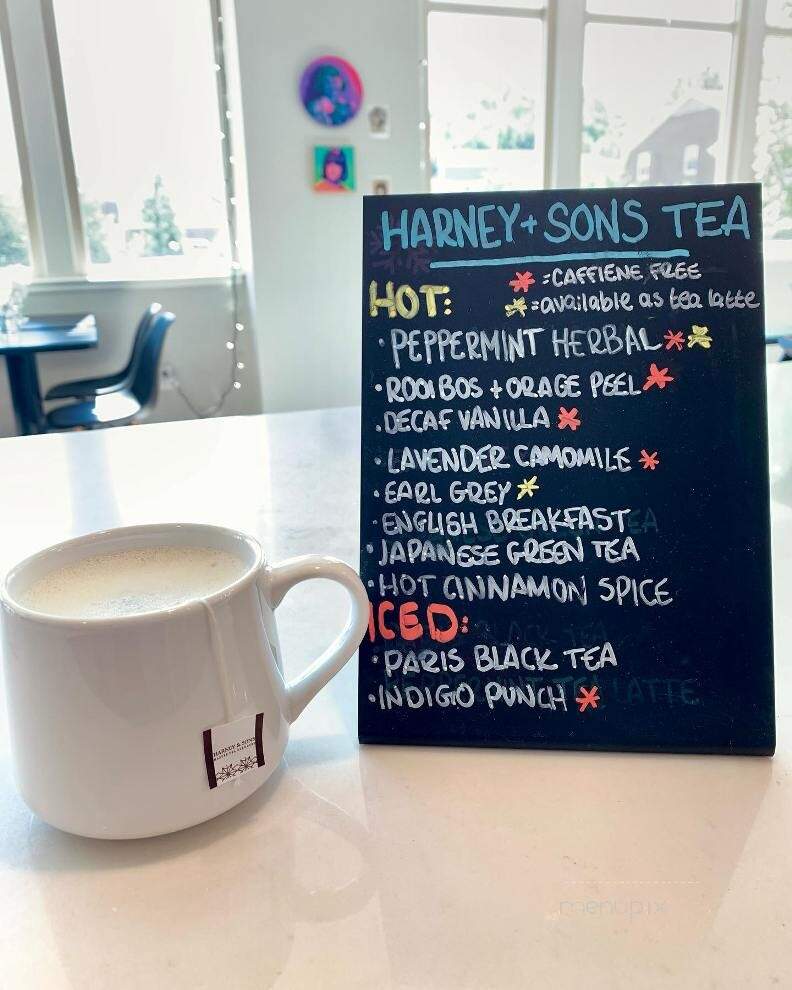 HARNEY + SONS TEA
* = CAFFIENE FREE
HOT:
* = available as tea latte
• PEPPERMINT HERBAL * *
• ROOIBOS + ORAGE PEEL *
• DECAF VANILLA *
• LAVENDER CAMOMILE *
• EARL GREY *
• ENGLISH BREAKFAST
• JAPANESE GREEN TEA
• HOT CINNAMON SPICE
ICED:
• PARIS BLACK TEA
• INDIGO PUNCH *
HARNEY & SONS
menupix